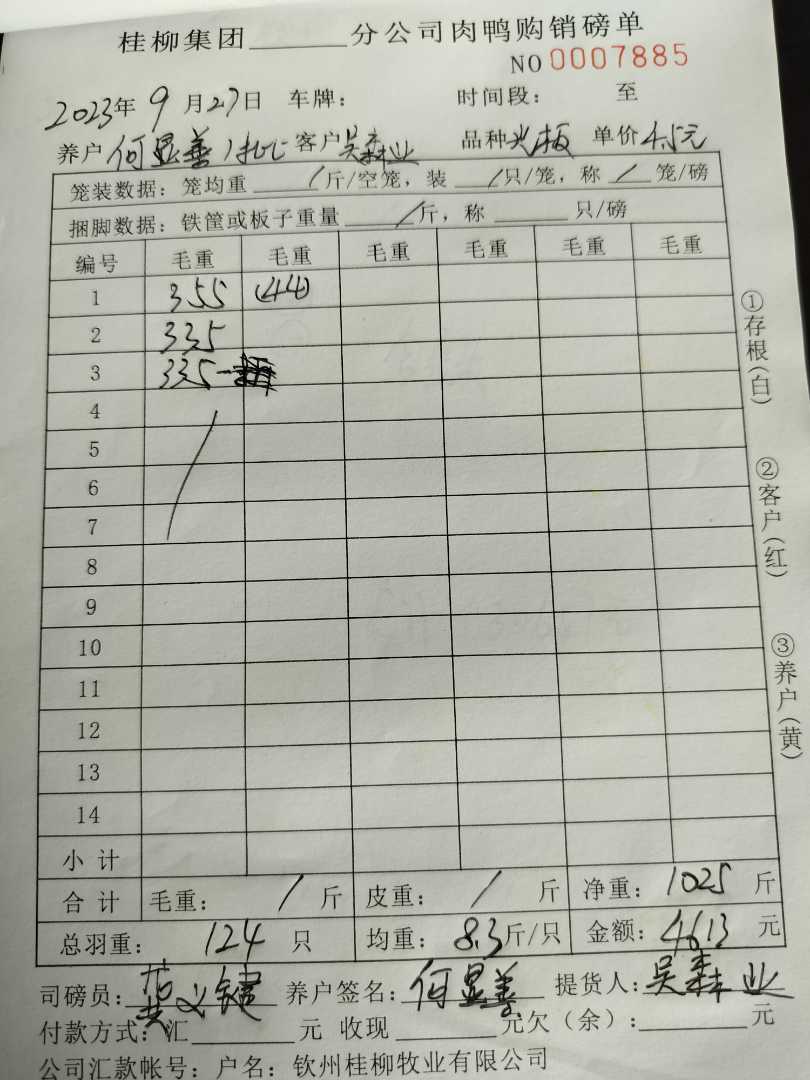 桂柳集团______分公司肉鸭购销磅单
NO 0007885
2023年 9 月 27日 车牌： 时间段： 至
养户 何显善 客户 吴森业 品种 光板 单价 4.5元
笼装数据：笼均重 / 斤/空笼，装 / 只/笼，称 / 笼/磅
捆脚数据：铁筐或板子重量 / 斤，称 只/磅
编号 毛重 毛重 毛重 毛重 毛重 毛重
1 355 (44)
2 335
3 335
4
5
6
7
8
9
10
11
12
13
14
小 计
合 计 毛重： / 斤 皮重： / 斤 净重：1025 斤
总羽重： 124 只 均重：8.3斤/只 金额：4613 元
司磅员：黄义键 养户签名：何显善 提货人：吴森业
付款方式：汇______元 收现______元欠（余）：______元
公司汇款帐号：户名：钦州桂柳牧业有限公司
①存根(白)
②客户(红)
③养户(黄)